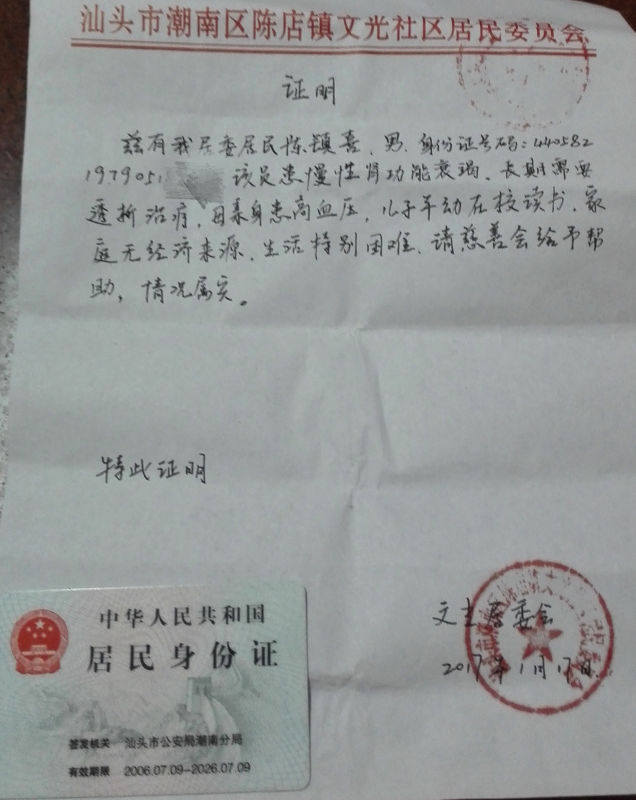 汕头市潮南区陈店镇文光社区居民委员会
证明
兹有我居委居民陈镇喜、男、身份证号码:440582
1979051 该员患慢性肾功能衰竭、长期需要
透析治疗,母亲身患高血压,儿子年幼在校读书、家
庭无经济来源、生活特别困难、请慈善会给予帮
助,情况属实。
特此证明
文光居委会
2017年1月17日
中华人民共和国
居民身份证
签发机关 汕头市公安局潮南分局
有效期限 2006.07.09-2026.07.09